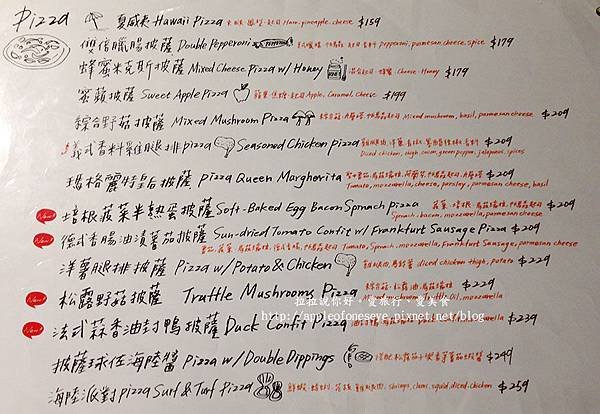 Pizza
夏威夷 Hawaii Pizza Ham, pineapple, cheese $159
雙倍臘腸披薩 Double Pepperoni pepperoni, parmesan cheese, spice $179
蜂蜜米克斯披薩 Mixed Cheese Pizza w/ Honey Cheese, Honey $179
蜜蘋披薩 Sweet Apple Pizza Apple, Caramel, Cheese $199
綜合野菇披薩 Mixed Mushroom Pizza Mixed mushroom, basil, parmesan cheese $209
義式香料雞腿排pizza Seasoned Chicken Pizza $209
Diced chicken, thigh, onion, green pepper, jalapeno, spices
瑪格麗特皇后披薩 Pizza Queen Margherita $209
Tomato, mozzarella, cheese, parsley, parmesan cheese, basil
New! 培根菠菜半熟蛋披薩 Soft-Baked Egg Bacon Spinach Pizza $209
Spinach, bacon, mozzarella, parmesan cheese
New! 德式香腸油漬蕃茄披薩 Sun-dried Tomato Confit w/ Frankfurt Sausage Pizza $209
Tomato, Spinach, mozzarella, Frankfurt Sausage, parmesan cheese
洋薯腿排披薩 Pizza w/ Potato & Chicken diced chicken thigh, potato $229
New! 松露野菇披薩 Truffle Mushrooms Pizza $229
mushroom, truffle oil, mozzarella
拉拉說你好。愛旅行、愛美食
http://appleofoneseye.pixnet.net/blog
New! 法式蒜香油封鴨披薩 Duck Confit Pizza $239
披薩球佐海陸醬 Pizza w/ Double Dippings $249
海陸派對pizza Surf & Turf Pizza shrimp, clams, squid, diced chicken $259